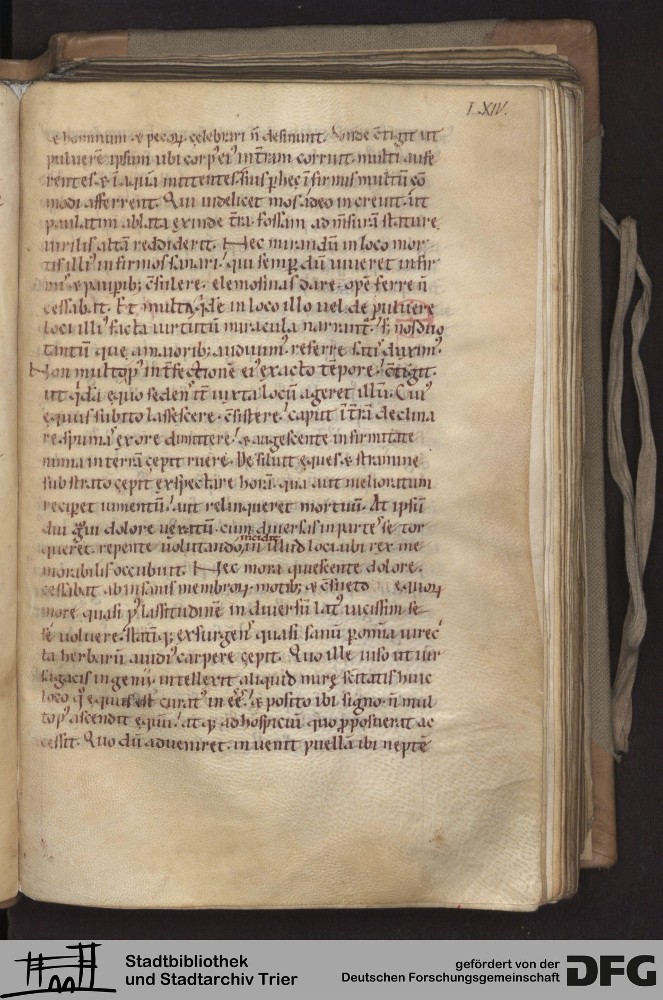 LXIV.
& hominum & pecoꝝ celebrari n̄ desinunt. Vnde ↄtigit ut
puluerē ipsum ubi corp̓ ei᷒ in t̄ram corruit. multi aufe
rentes & ī aquā mittentes suis ꝑ hec īfirmis multū cō
modi afferrent. Qui uidelicet mos adeo increuit. ut
paulatim ablata exinde t̄ra. fossam ad m̄surā stature
uirilis altā reddiderit. Nec mirandū in loco mor
tis illi᷒ infirmos sanari. qui semꝑ dū uiueret infir
mis & pauꝑib; ↄsulere. elemosinas dare. opē ferre n̄
cessabat. Et multa q̇dē in loco illo uel de puluere
loci illi᷒ facta uirtutū miracula narrant᷑. sꝫ nos duo
tantū que a maiorib; audiuim᷒ referre sati᷒ duxim᷒.
Non multo p᷒ int̄fectionē ei᷒ exacto tēpore. ↄtigit.
ut q̇dā equo sedens it̄ iuxta locū ageret illū. Cui᷒
equus subito lassescere. ↄsistere. caput ī t̄rā declina
re. spumas ex ore dimittere. & augescente infirmitate
nimia in terrā cepit ruere. Desiluit eques. & stramine
substrato cepit exspectare horā. qua aut melioratum
reciꝑet iumentū. aut relinqueret mortuum. At ipsū
diu gui dolore uexatū. cum diuersas in parte᷒ se tor
queret. repente uolutando
incidit
in illud loci ubi rex me
morabilis occubuit. Nec mora quiescente dolore.
cessabat ab insanis membroꝝ motib; & ↄsueto equoꝝ
more quasi p᷒ lassitudinē in diuersū lat᷒ uicissim se
se uoluere. statīq; exsurgens quasi sanū ꝑ omnia uirec
ta herbarū auidi᷒ carpere cepit. Quo ille uiso ut uir
sagacis ingenij intellexit aliquid mire scitatis huic
loco q̊ equus est curat᷒ in eē. & posito ibi signo. n̄ mul
to p᷒ ascendit equū. atq; ad hospiciū quo ꝓposuerat ac
cessit. Quo dū adueniret. inuenit puellā ibi neptē
Stadtbibliothek
und Stadtarchiv Trier
gefördert von der
Deutschen Forschungsgemeinschaft
DFG